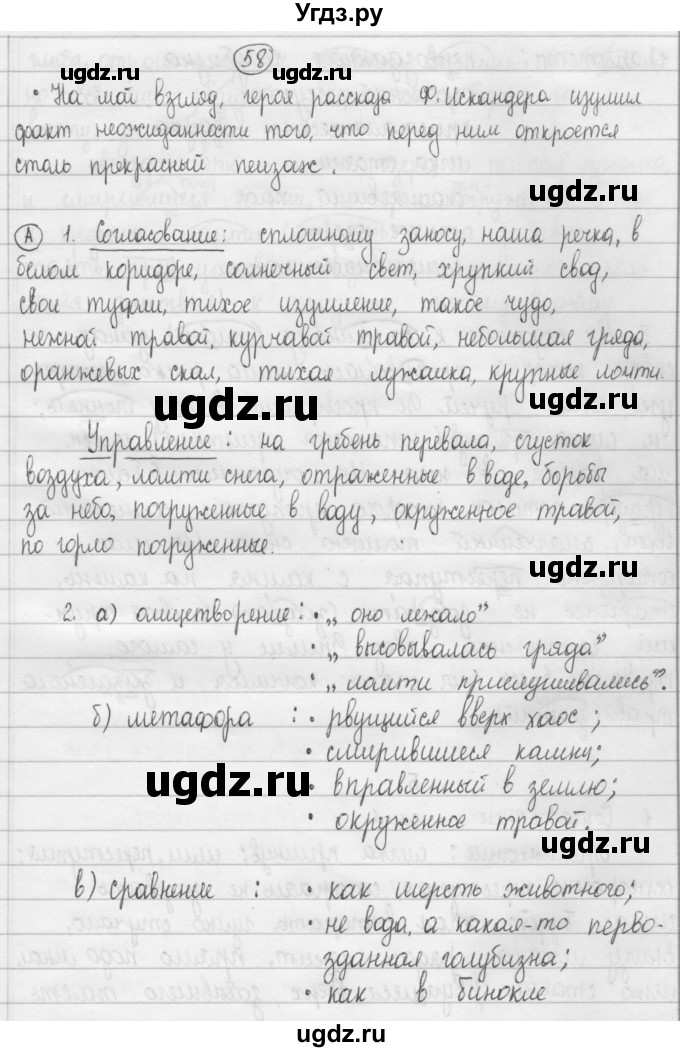 Угдз.ру
58
• На мой взгляд, героя рассказа Ф. Искандера изумил
факт неожиданности того, что перед ним откроется
столь прекрасный пейзаж.
А 1. Согласование: сплошному заносу, наша речка, в
белом коридоре, солнечный свет, хрупкий свод,
свои туфли, тихое изумление, такое чудо,
нежной травой, курчавой травой, небольшая гряда,
оранжевых скал, тихая лужайка, крупные ломти.
Управление: на гребень перевала, сгусток
воздуха, ломти снега, отраженные в воде, борьбы
за небо, погруженные в воду, окруженное травой,
по горло погруженные.
2. а) олицетворение: • „оно лежало"
• „высовывалась гряда"
• „ломти прислушивались".
б) метафора : • рвущийся вверх хаос;
• смирившиеся камни;
• вправленный в землю;
• окруженное травой.
в) сравнение : • как шерсть животного;
• не вода, а какая-то перво-
зданная голубизна;
• как в бинокле
ugdz.ru
ugdz.ru
ugdz.ru
ugdz.ru
ugdz.ru
ugdz.ru
ugdz.ru
ugdz.ru
ugdz.ru
ugdz.ru
ugdz.ru
ugdz.ru
ugdz.ru